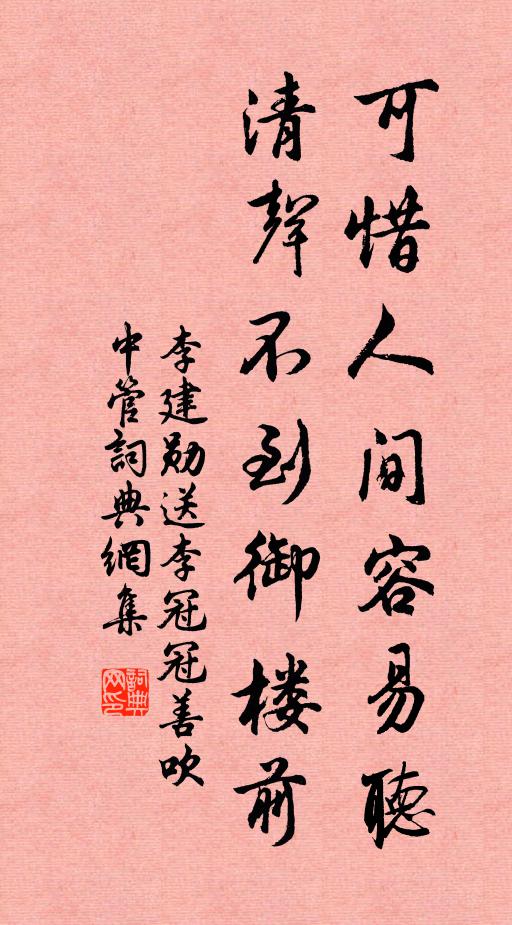 可惜人间容易聽
清聲不到御楼前
李建勋送李冠冠善吹
中管詞典網集
詞典网印